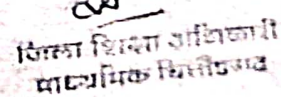 जिला शिक्षा अधिकारी
माध्यमिक चित्तौडगढ